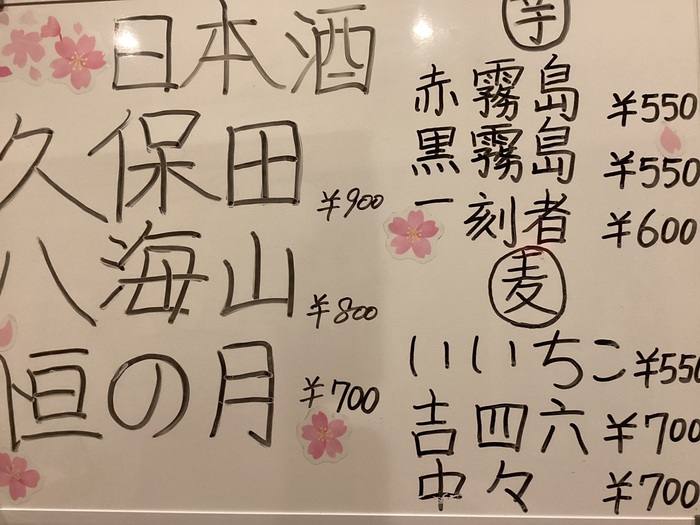 日本酒
久保田 ¥900
八海山 ¥800
恒の月 ¥700
芋
赤霧島 ¥550
黒霧島 ¥550
一刻者 ¥600
麦
いいちこ ¥550
吉四六 ¥700
中々 ¥700